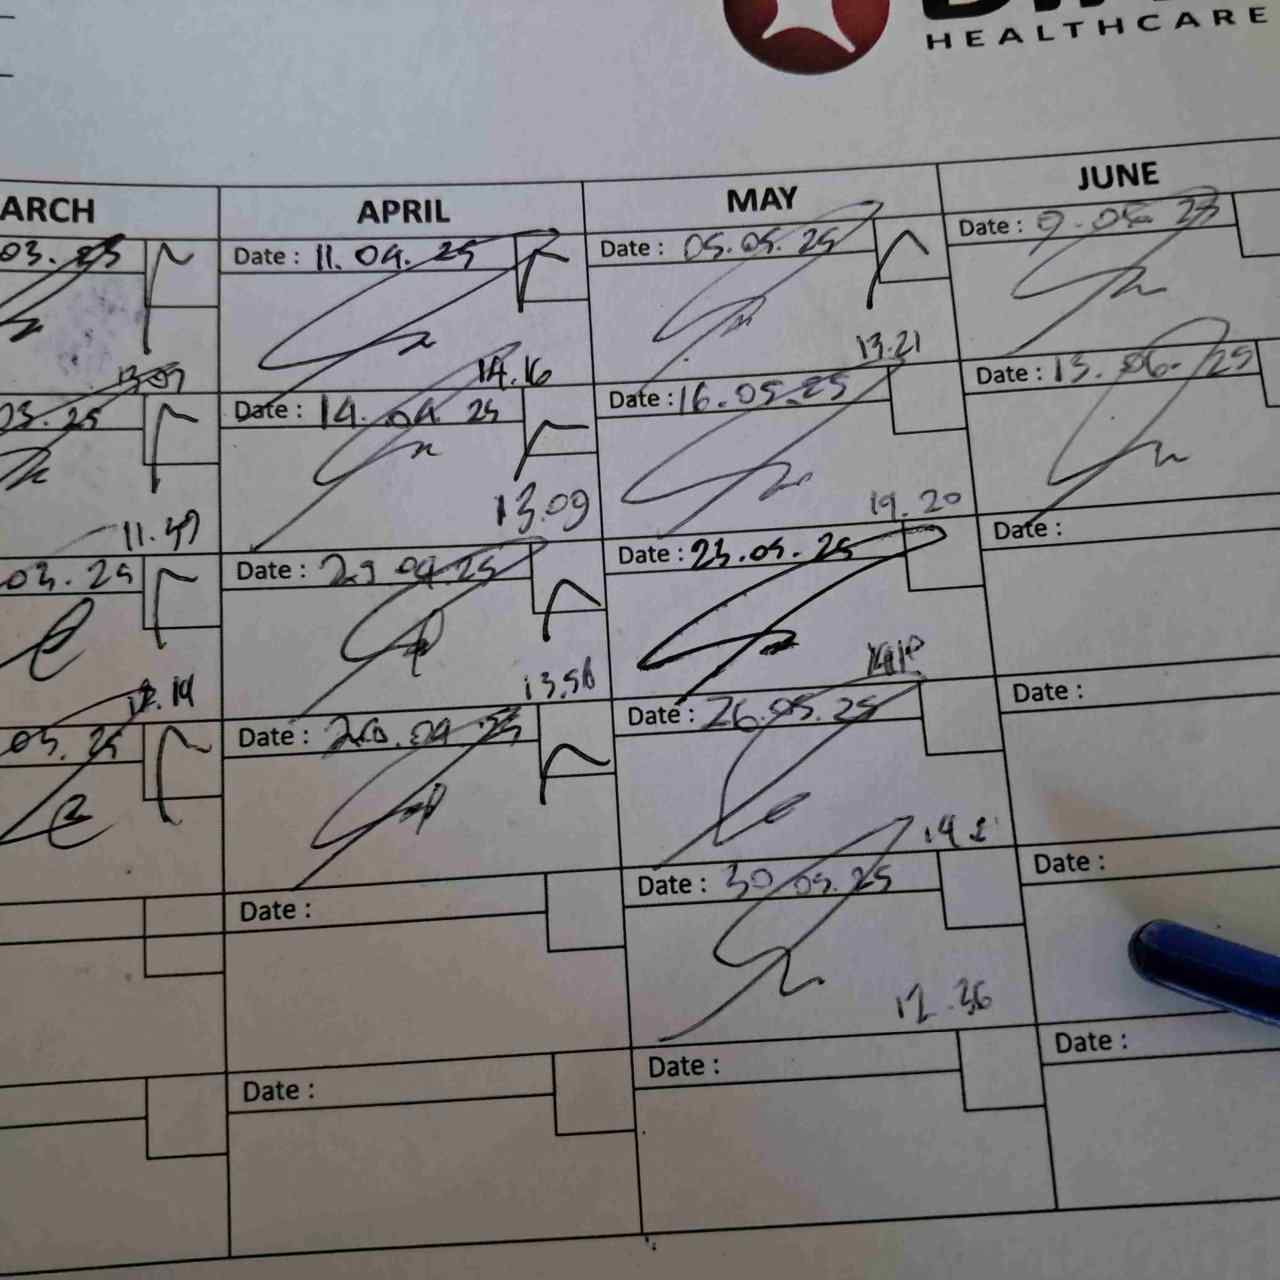 HEALTHCARE
ARCH APRIL MAY JUNE
03.25 Date : 11.04.25 Date : 05.05.25 Date :
14.16 13.21
03.25 Date : 14.04.25 Date : 16.05.25 Date : 13.06.25
11.47 13.09 19.20
03.25 Date : 23.04.25 Date : 23.05.25 Date :
12.19 13.56
03.25 Date : 04.25 Date : 26.05.25 Date :
Date : Date : 30.05.25 Date :
12.36
Date : Date : Date :